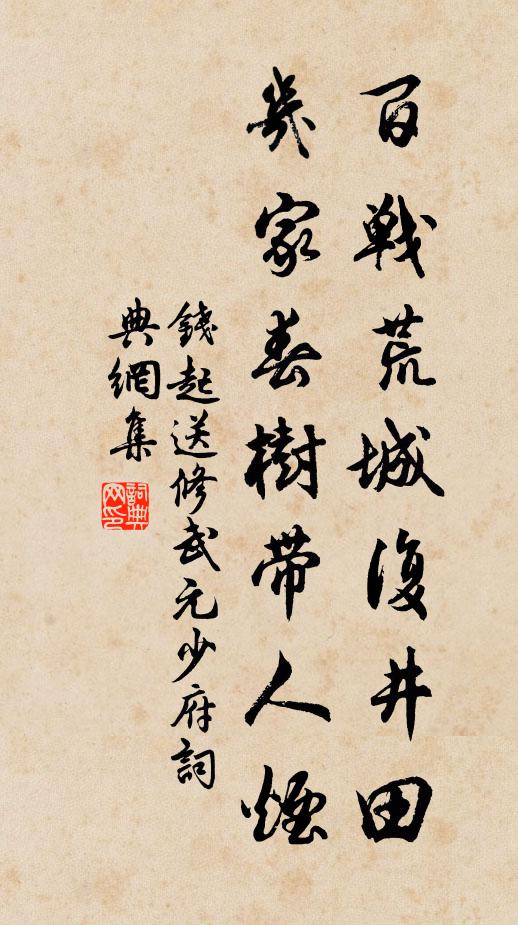 百戰荒城復井田
幾家春樹帶人煙
錢起送修武元少府詞
典網集
詞典网印